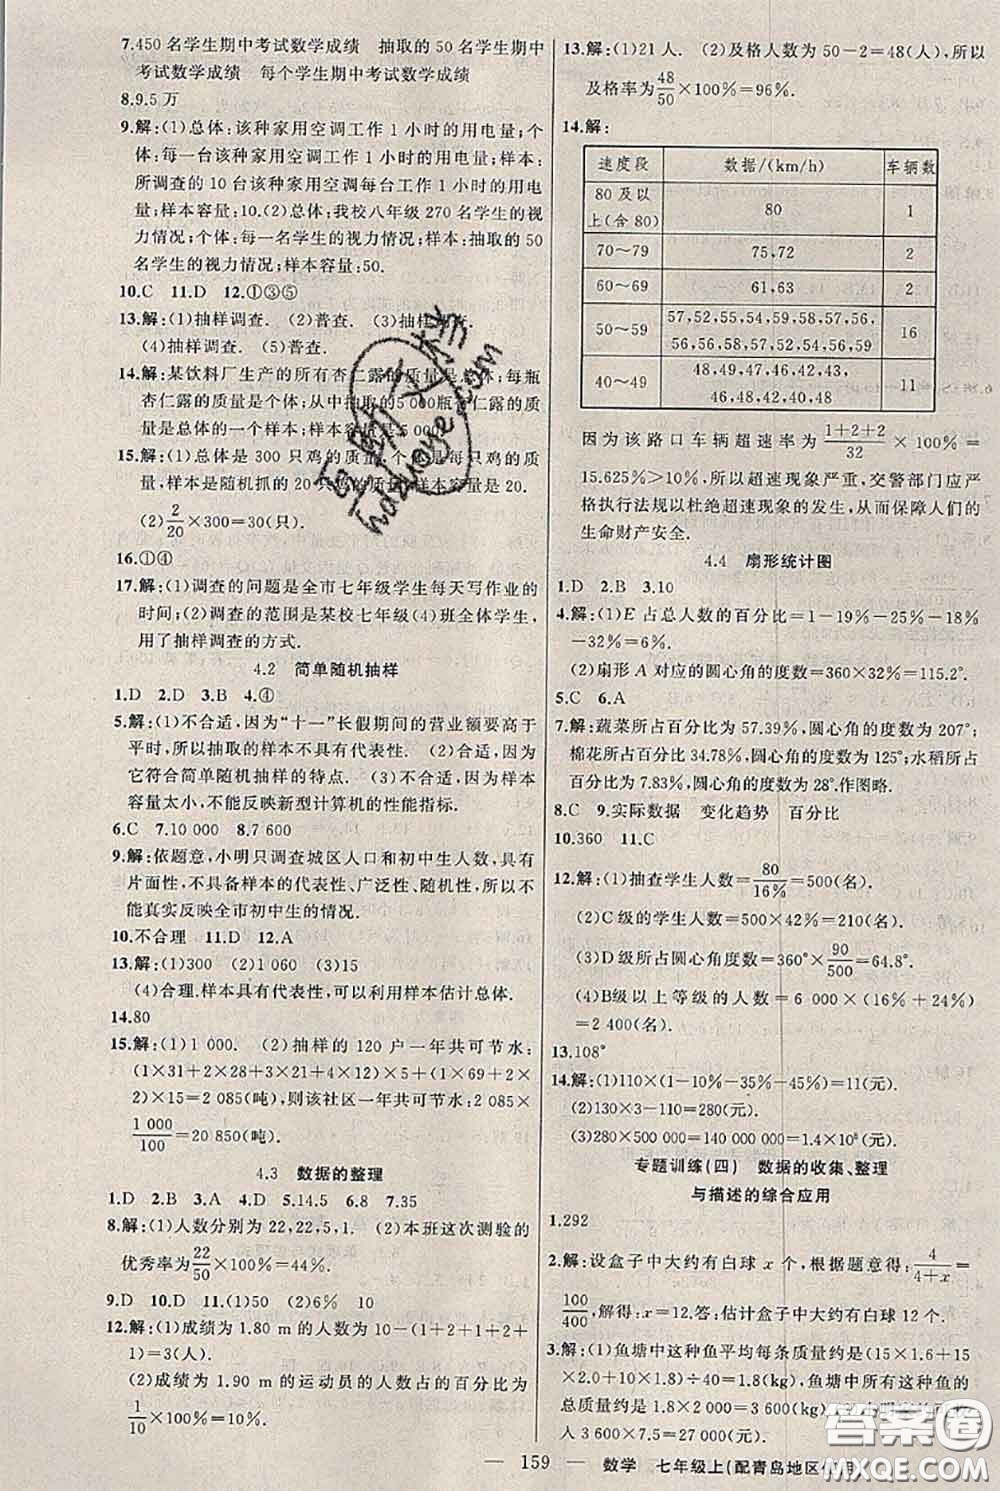 7.450 名学生期中考试数学成绩 抽取的 50 名学生期中
考试数学成绩 每个学生期中考试数学成绩
8.9.5 万
9.解:(1)总体:该种家用空调工作 1 小时的用电量;个
体:每一台该种家用空调工作 1 小时的用电量;样本:
所调查的 10 台该种家用空调每台工作 1 小时的用电
量;样本容量:10.(2)总体:我校八年级 270 名学生的视
力情况;个体:每一名学生的视力情况;样本:抽取的 50
名学生的视力情况;样本容量:50.
10.C 11.D 12.①③⑤
13.解:(1)抽样调查. (2)普查. (3)抽样调查.
(4)抽样调查. (5)普查.
14.解:某饮料厂生产的所有杏仁露的质量是总体;每瓶
杏仁露的质量是个体;从中抽取的5 000瓶杏仁露的质
量是总体的一个样本;样本容量是5 000.
15.解:(1)总体是 300 只鸡的质量,个体是每只鸡的质
量,样本是随机抓的 20 只鸡的质量,样本容量是 20.
(2) 2/20 ×300=30(只).
16.①④
17.解:(1)调查的问题是全市七年级学生每天写作业的
时间;(2)调查的范围是某校七年级(4)班全体学生,
用了抽样调查的方式.
4.2 简单随机抽样
1.D 2.D 3.B 4.④
5.解:(1)不合适,因为“十一”长假期间的营业额要高于
平时,所以抽取的样本不具有代表性. (2)合适,因为
它符合简单随机抽样的特点. (3)不合适,因为样本
容量太小,不能反映新型计算机的性能指标.
6.C 7.10 000 8.7 600
9.解:依题意,小明只调查城区人口和初中生人数,具有
片面性,不具备样本的代表性、广泛性、随机性,所以不
能真实反映全市初中生的情况.
10.不合理 11.D 12.A
13.解:(1)300 (2)1 060 (3)15
(4)合理.样本具有代表性,可以利用样本估计总体.
14.80
15.解:(1)1 000. (2)抽样的 120 户一年共可节水:
(1×31+2×28+3×21+4×12)×5+(1×69+2×2
×2)×15=2 085(吨),则该社区一年共可节水:2 085
× 1 000/100 =20 850(吨).
4.3 数据的整理
1.D 2.B 3.A 4.D 5.14.5 6.8 7.35
8.解:(1)人数分别为 22,22,5,1. (2)本班这次测验的
优秀率为 22/50 ×100%=44%.
9.D 10.D 11.(1)50 (2)6% 10
12.解:(1)成绩为 1.80 m的人数为 10-(1+2+1+2+
1)=3(人).
(2)成绩为 1.90 m 的运动员的人数占的百分比为
1/10 ×100%=10%.
13.解:(1)21人. (2)及格人数为 50-2=48(人),所以
及格率为 48/50 ×100%=96%.
14.解:
速度段 数据/(km/h) 车辆数
80 及以
上(含 80) 80 1
70～79 75,72 2
60～69 61,63 2
50～59 57,52,55,54,59,58,57,56, 16
56,56,58,57,55,56,55,59
40～49 48,49,47,42,45,44,43, 11
46,48,42,40,48
因为该路口车辆超速率为 1+2+2/32 ×100%=
15.625%>10%. 所以超速现象严重,交警部门应严
格执行法规以杜绝超速现象的发生,从而保障人们的
生命财产安全.
4.4 扇形统计图
1.D 2.B 3.10
4.解:(1)E 占总人数的百分比=1-19%-25%-18%
-32%=6%.
(2)扇形 A 对应的圆心角的度数=360×32%=115.2°.
5.C 6.A
7.解:蔬菜所占百分比为 57.39%,圆心角的度数为 207°;
棉花所占百分比 34.78%,圆心角的度数为 125°;水稻所占
百分比为 7.83%,圆心角的度数为 28°.作图略.
8.C 9.实际数据 变化趋势 百分比
10.360 11.C
12.解:(1)抽查学生人数= 80/16% =500(名).
(2)C 级的学生人数=500×42%=210(名).
(3)D 级所占圆心角度数=360°× 90/500 =64.8°.
(4)B级以上等级的人数=6 000×(16%+24%)
=2 400(名).
13.108°
14.解:(1)110×(1-10%-35%-45%)=11(元).
(2)130×3-110=280(元).
(3)280×500 000=140 000 000=1.4×10⁸(元).
专题训练(四) 数据的收集、整理
与描述的综合应用
1.292
2.解:设盒子中大约有白球 x 个,根据题意得: 4/4+x =
100/400 ,解得:x=12.答:估计盒子中大约有白球 12 个.
3.解:(1)鱼塘中这种鱼平均每条质量约是(15×1.6+15
×2.0+10×1.8)÷40=1.8(kg),鱼塘中所有这种鱼的
总质量约是 1.8×2 000=3 600(kg).
入 3 600×7.5=27 000(元).
— 159 — 数学 七年级上(配青岛地区使用)
互助文档
hdzuoye.com
答案圈
MXQE.COM